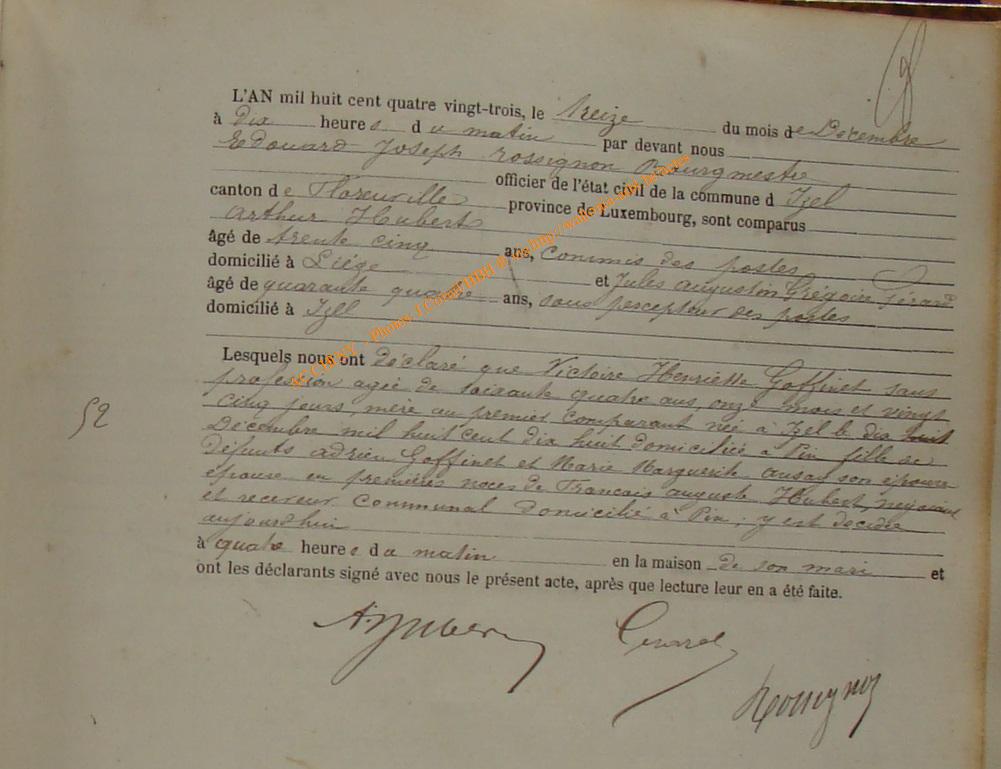 L'AN mil huit cent quatre vingt-trois, le treize du mois de Décembre
à dix heures du matin par devant nous
Edouard Joseph Rossignon Bourgmestre
officier de l'état civil de la commune d Izel
canton de Florenville province de Luxembourg, sont comparus
Arthur Hubert
âgé de trente cinq ans, commis des postes
domicilié à Liége et Jules Augustin Grégoire Gérard
âgé de quarante quatre ans, sous percepteur des postes
domicilié à Izel
Lesquels nous ont déclaré que Victoire Henriette Goffinet sans
profession agée de soixante quatre ans, onze mois et vingt
cinq jours, mère au premier comparant née à Izel le dix huit
Décembre mil huit cent dix huit domiciliée à Pin fille de
défunts Adrien Goffinet et Marie Marguerite son épouse
épouse en premières noces de Francois Auguste Hubert, négociant
et receveur communal domicilié à Pin, y est décédée
aujourdhui
à quatre heures du matin en la maison de son mari et
ont les déclarants signé avec nous le présent acte, après que lecture leur en a été faite.
52
A Hubert
Gerard
Rossignon